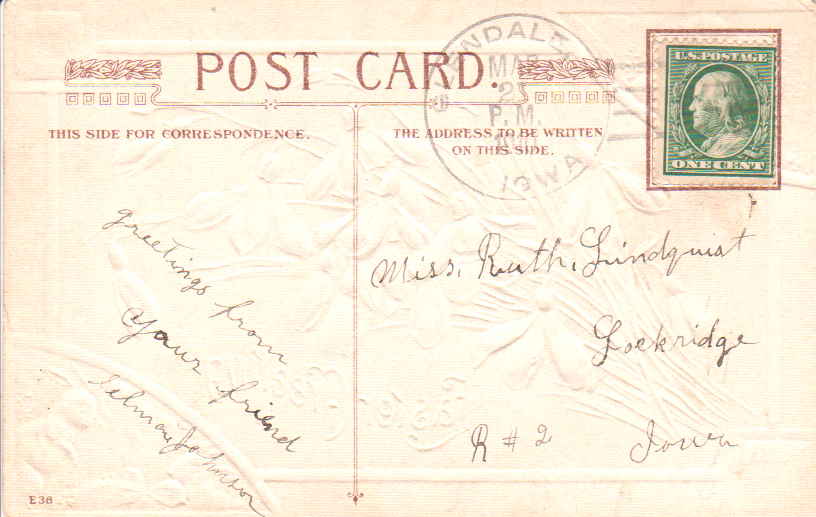 POST CARD.
THIS SIDE FOR CORRESPONDENCE.
THE ADDRESS TO BE WRITTEN
ON THIS SIDE.
MAR
P. M.
IOWA
U.S. POSTAGE
ONE CENT
greetings from
your friend
Selma Johnson
Miss. Ruth. Lindquist
Lockridge
R # 2 Iowa
E38